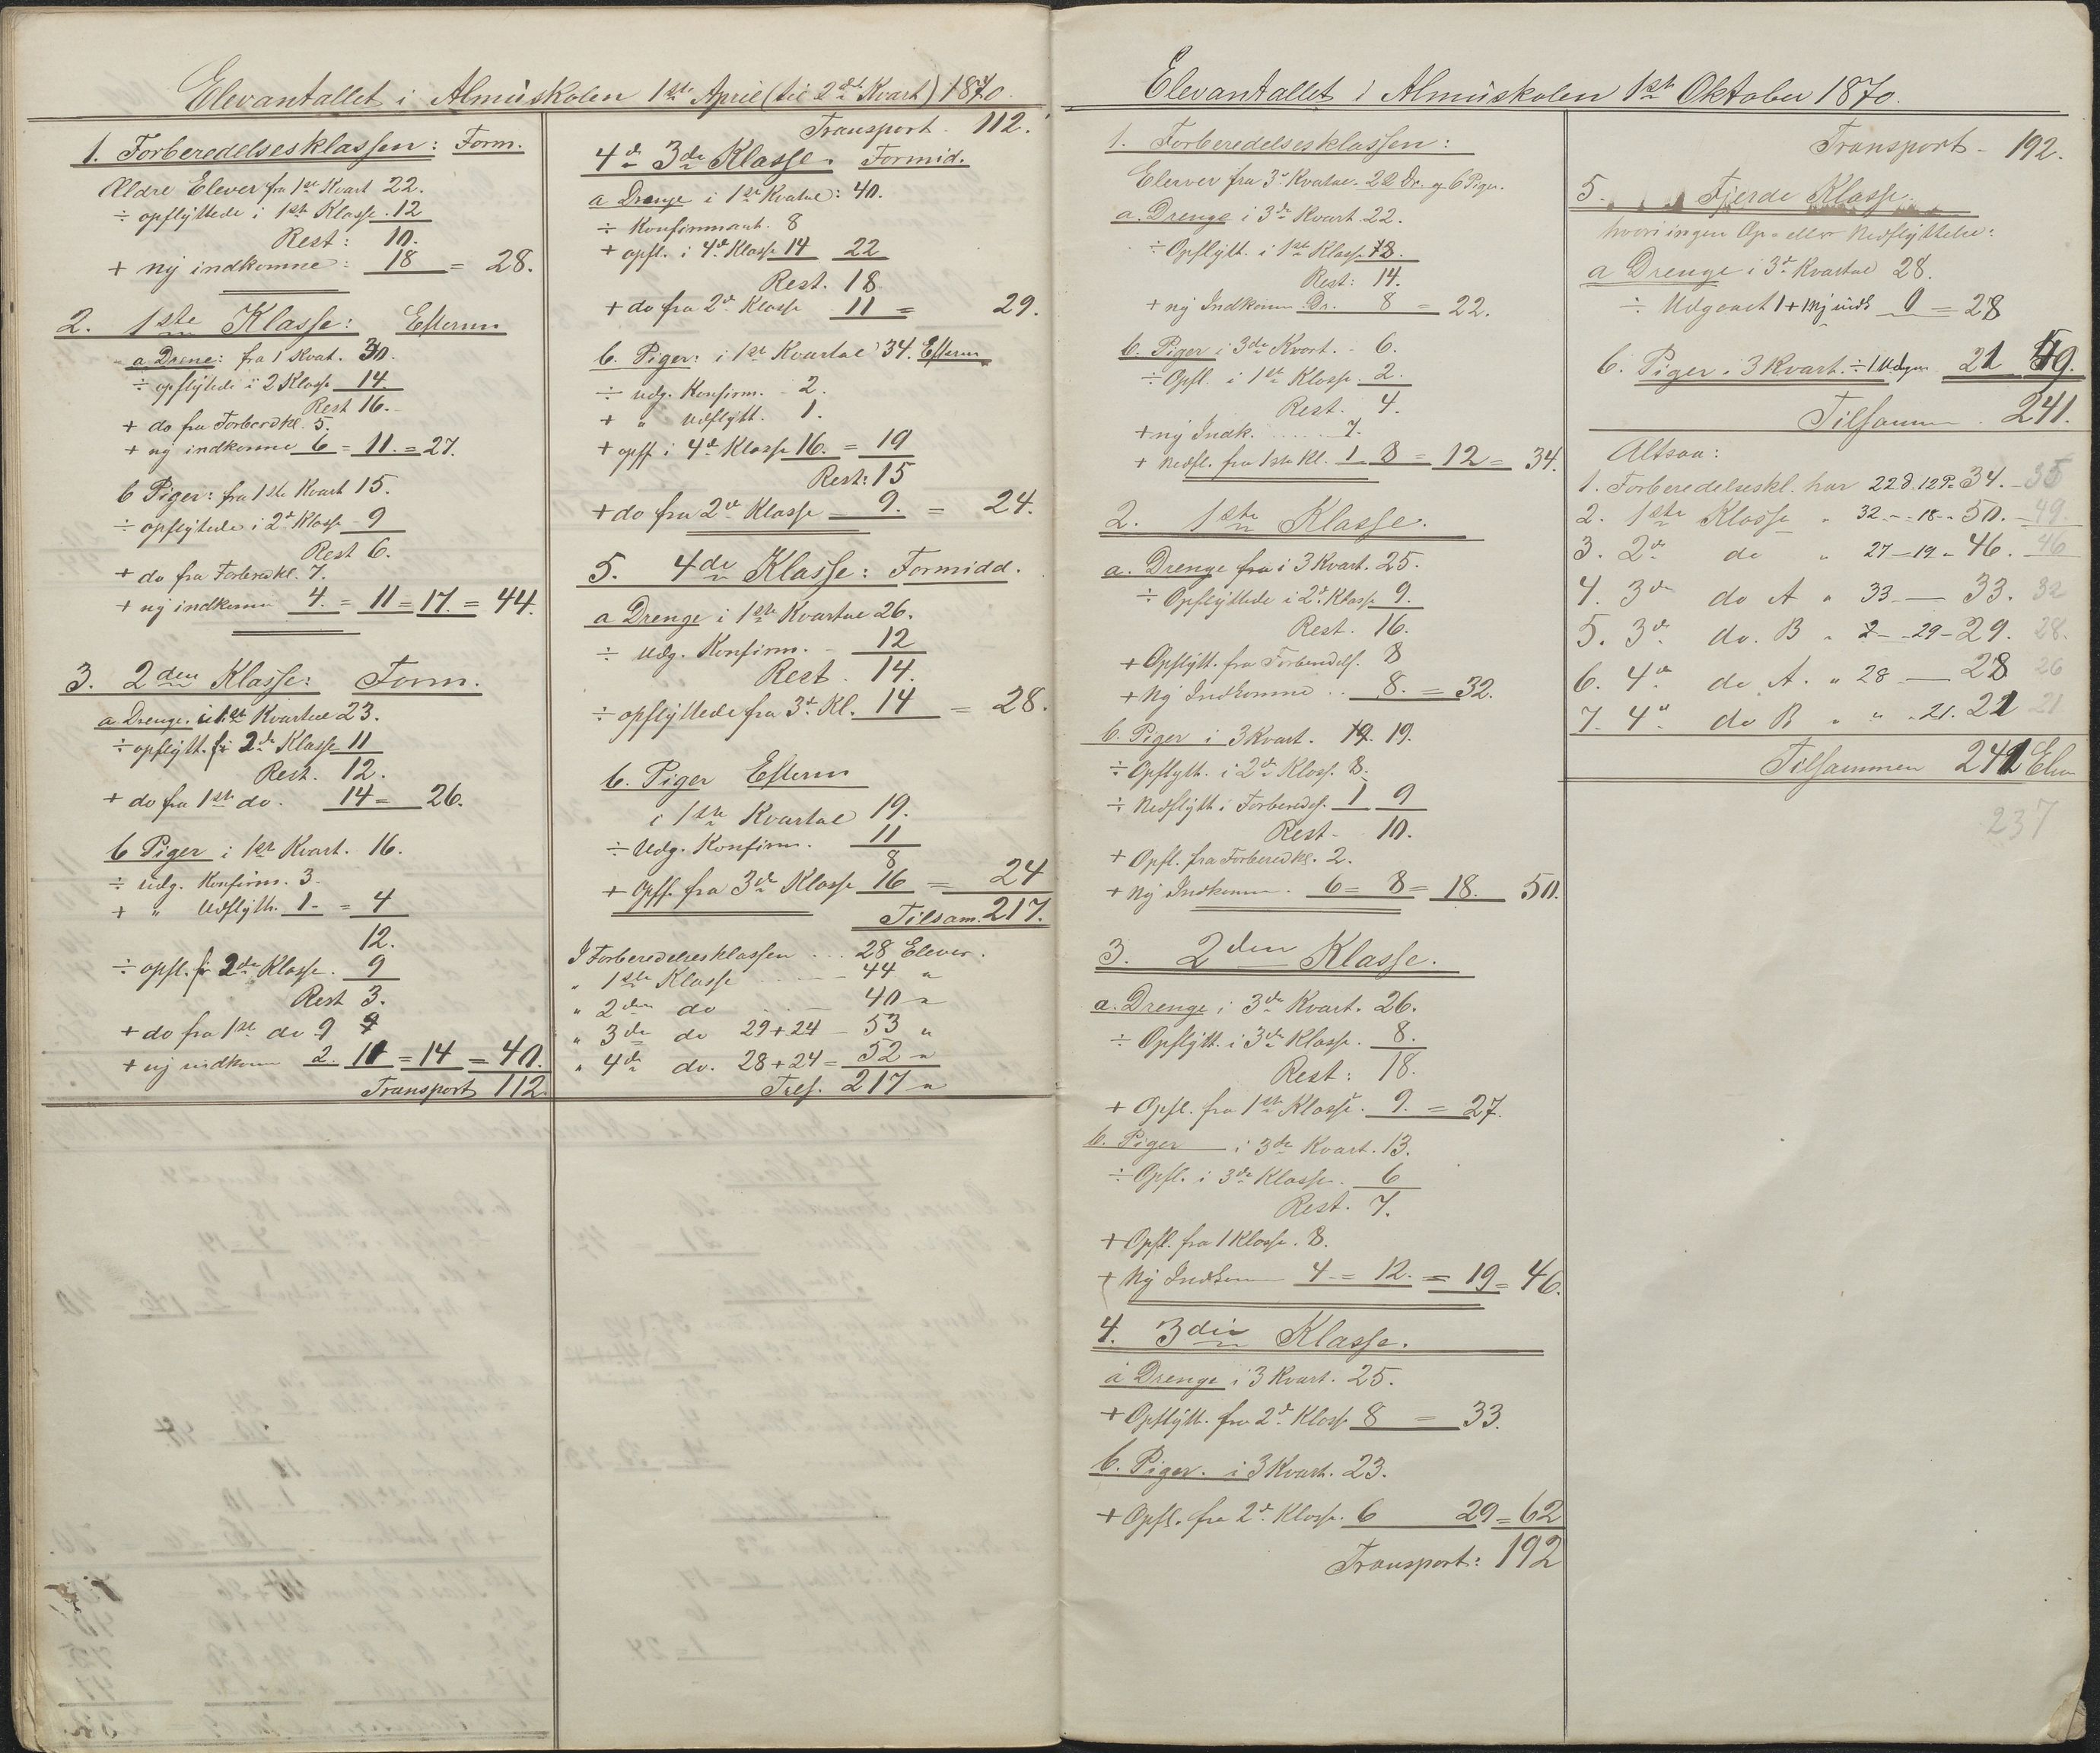 Elevantallet i Almuskolen 1ste April (til 2det Kvart) 1870.
1. Forberedelsesklassen: Form.
Ældre Elever fra 1ste Kvart 22.
÷ opflyttede i 1ste Klasse . 12
Rest: 10.
+ ny indkomne: 18 = 28.
2. 1ste Klasse: Efterm
a Drene: fra 1 Kvat. 30.
÷ opflytede i 2 Klasse 14.
Rest 16.
+ do fra Forberdkl. 5.
+ ny indkomne 6 = 11. = 27.
b Piger: fra 1ste Kvart 15.
÷ opflytede i 2d Klasse - 9
Rest 6.
+ do fra Forberedkl. 7.
+ ny indkomn 4. = 11 = 17. = 44.
3. 2den Klasse: Form.
a Drenge. i 1ste Kvartal 23.
÷ opflytt. fr 2de Klasse 11
Rest. 12.
+ do fra 1ste do. 14 = 26.
b Piger i 1ste Kvart. 16.
÷ udg. Konfirm. 3.
+ " Udflytt. 1. = 4
12.
÷ opfl. fr 2de Klasse. 9
Rest 3.
+ do fra 1ste do 9
+ ny indkom 2. 11 = 14 = 40.
Transport 112.
Transport. 112.
4de 3de Klasse. Formid.
a Drenge i 1ste Kvatal: 40.
÷ Konfirmant. 8
+ opfl. i 4de Klasse 14 22
Rest. 18
+ do fra 2d Klasse 11 = 29.
b. Piger: i 1ste Kvartal 34. Efterm
÷ udg. Konfirm. - 2.
+ " Udflytt. 1.
+ opfl i 4d Klasse 16. = 19
Rest: 15
+ do fra 2d Klasse 9. = 24.
5. 4de Klasse: Formidd.
a Drenge i 1ste Kvartal 26.
÷ Udg. Konfirm. - 12
Rest. 14.
÷ opflyttede fra 3d. Kl. 14 = 28.
b. Piger Efterm
i 1ste Kvartal 19.
÷ Udg. Konfirm. 11
8
+ Opfl. fra 3de Klasse 16 = 24
Tilsam. 217.
I Forberedelsesklassen ... 28 Elever.
" 1ste Klasse - 44 "
" 2den do - 40 "
" 3de do 29 + 24 - 53 "
" 4de do. 28 + 24 = 52 "
Tils. 217 "
Elevantallet i Almuskolen 1ste Oktober 1870.
1. Forberedelsesklassen:
Elever fra 3d Kvatal. 22 Dr. og 6 Piger.
a. Drenge i 3de Kvart. 22.
÷ Opflytt. i 1ste Klasse 8.
Rest: 14.
+ ny Indkomn. Dr. 8 = 22.
b. Piger i 3de Kvart. - 6.
÷ Opfl. i 1ste Klasse. 2.
Rest. 4.
+ ny Indk. ..... 7.
+ Nedfl. fra 1ste Kl. 1 8 = 12 = 34.
2. 1ste Klasse.
a. Drenge fra i 3 Kvart. 25.
÷ Opflyttede i 2d Klasse 9.
Rest. 16.
+ Opflytt. fra Forberedels. 8
+ Ny Indkomne .. 8. = 32.
b. Piger i 3 Kvart. 19. 19.
÷ Opflytt. i 2de Klass. 8.
÷ Nedflytt i Forberedes. 1 9
Rest - 10.
+ Opfl. fra Forberedkl. 2.
+ Ny Indkomn. 6 = 8 = 18. 50.
3. 2den Klasse.
a. Drenge i 3de Kvart. 26.
÷ Opflytt. i 3de Klasse. 8.
Rest: 18.
+ Opfl. fra 1ste Klasse. 9. = 27.
b. Piger i 3de Kvart. 13.
÷ Opfl. i 3de Klasse. 6
Rest. 7.
+ Opfl. fra 1 Klasse. 8.
+ Ny Indkom 4 = 12. = 19 = 46.
4. 3die Klasse.
a Drenge i 3 Kvart. 25.
+ Opflytt. fra 2d Klass 8 = 33.
b. Piger. i 3 Kvart. 23.
+ Opfl. fra 2d Klasse. 6 29 = 62
Transport: 192
Transport - 192.
5. Fjerde Klasse.
hvori ingen Op- eller Nedflyttelse:
a Drenge i 3d Kvartal 28.
÷ Udgaaet 1 + 1 Ny indk 0 = 28
b. Piger i 3 Kvart. ÷ 1 Udgn 21 49.
Tilsamm. 241.
Altsaa:
1. Forberedelseskl. har 22 d. 12 P. 34. - 35
2. 1ste Klasse " 32 - - 18 - 50. - 49.
3. 2d do " 27 - 19 - 46. 46
4. 3de do A " 33 — 33. 32
5. 3d do. B " - 29 - 29. 28.
6. 4d do A. " 28 — 28 26
7. 4d do B " " 21. 21 21
Tilsammen 241 Elev
237